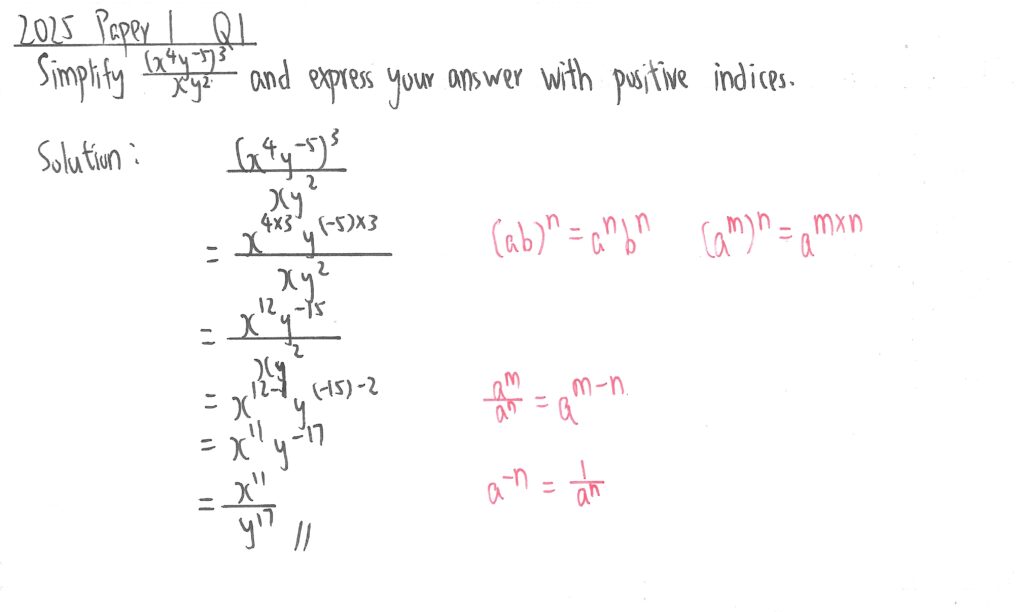 2025 Paper 1 Q1
Simplify (x⁴y⁻⁵)³/xy² and express your answer with positive indices.
Solution: (x⁴y⁻⁵)³/xy²
= x⁴ˣ³y⁽⁻⁵⁾ˣ³/xy² (ab)ⁿ = aⁿbⁿ (aᵐ)ⁿ = aᵐˣⁿ
= x¹²y⁻¹⁵/xy²
= x¹²⁻¹y⁽⁻¹⁵⁾⁻² aᵐ/aⁿ = aᵐ⁻ⁿ
= x¹¹y⁻¹⁷
= x¹¹/y¹⁷ // a⁻ⁿ = 1/aⁿ